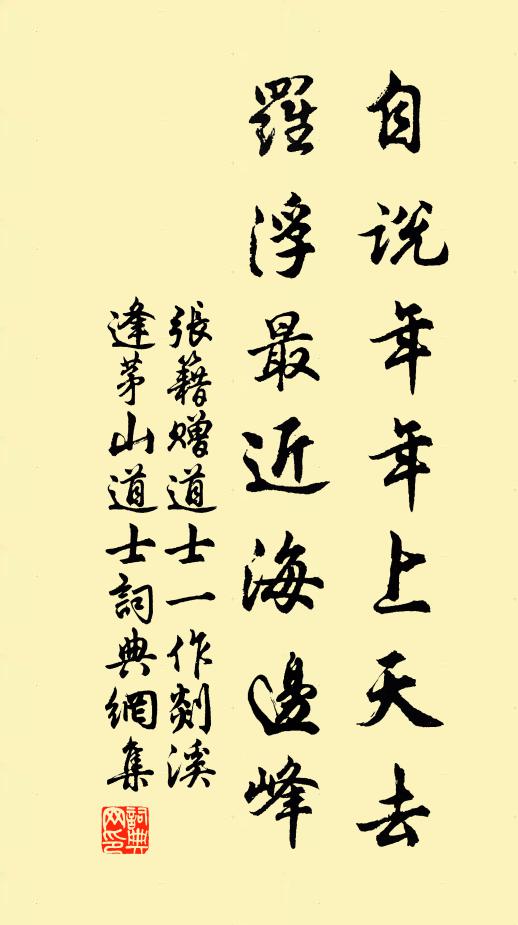 自说年年上天去
羅浮最近海邊峰
張籍贈道士一作剡溪
逢茅山道士詞典網集
詞典
网印